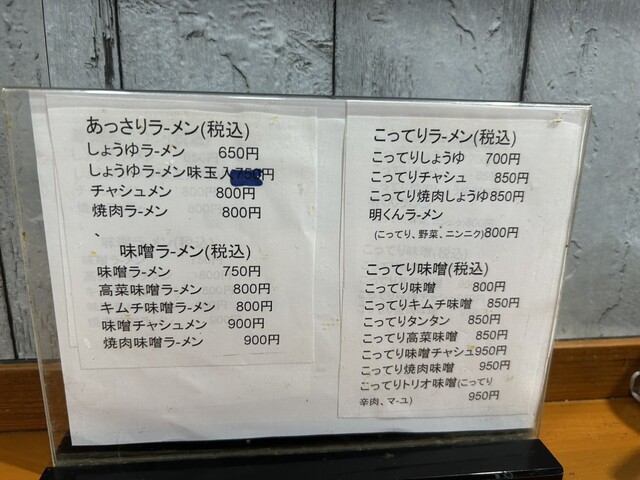 あっさりラーメン(税込)
しょうゆラーメン 650円
しょうゆラーメン味玉入 円
チャシュメン 800円
焼肉ラーメン 800円
、
味噌ラーメン(税込)
味噌ラーメン 750円
高菜味噌ラーメン 800円
キムチ味噌ラーメン 800円
味噌チャシュメン 900円
焼肉味噌ラーメン 900円
こってりラーメン(税込)
こってりしょうゆ 700円
こってりチャシュ 850円
こってり焼肉しょうゆ850円
明くんラーメン
(こってり、野菜、ニンニク)800円
こってり味噌(税込)
こってり味噌 800円
こってりキムチ味噌 850円
こってりタンタン 850円
こってり高菜味噌 850円
こってり味噌チャシュ950円
こってり焼肉味噌 950円
こってりトリオ味噌(こってり
辛肉、マーユ) 950円